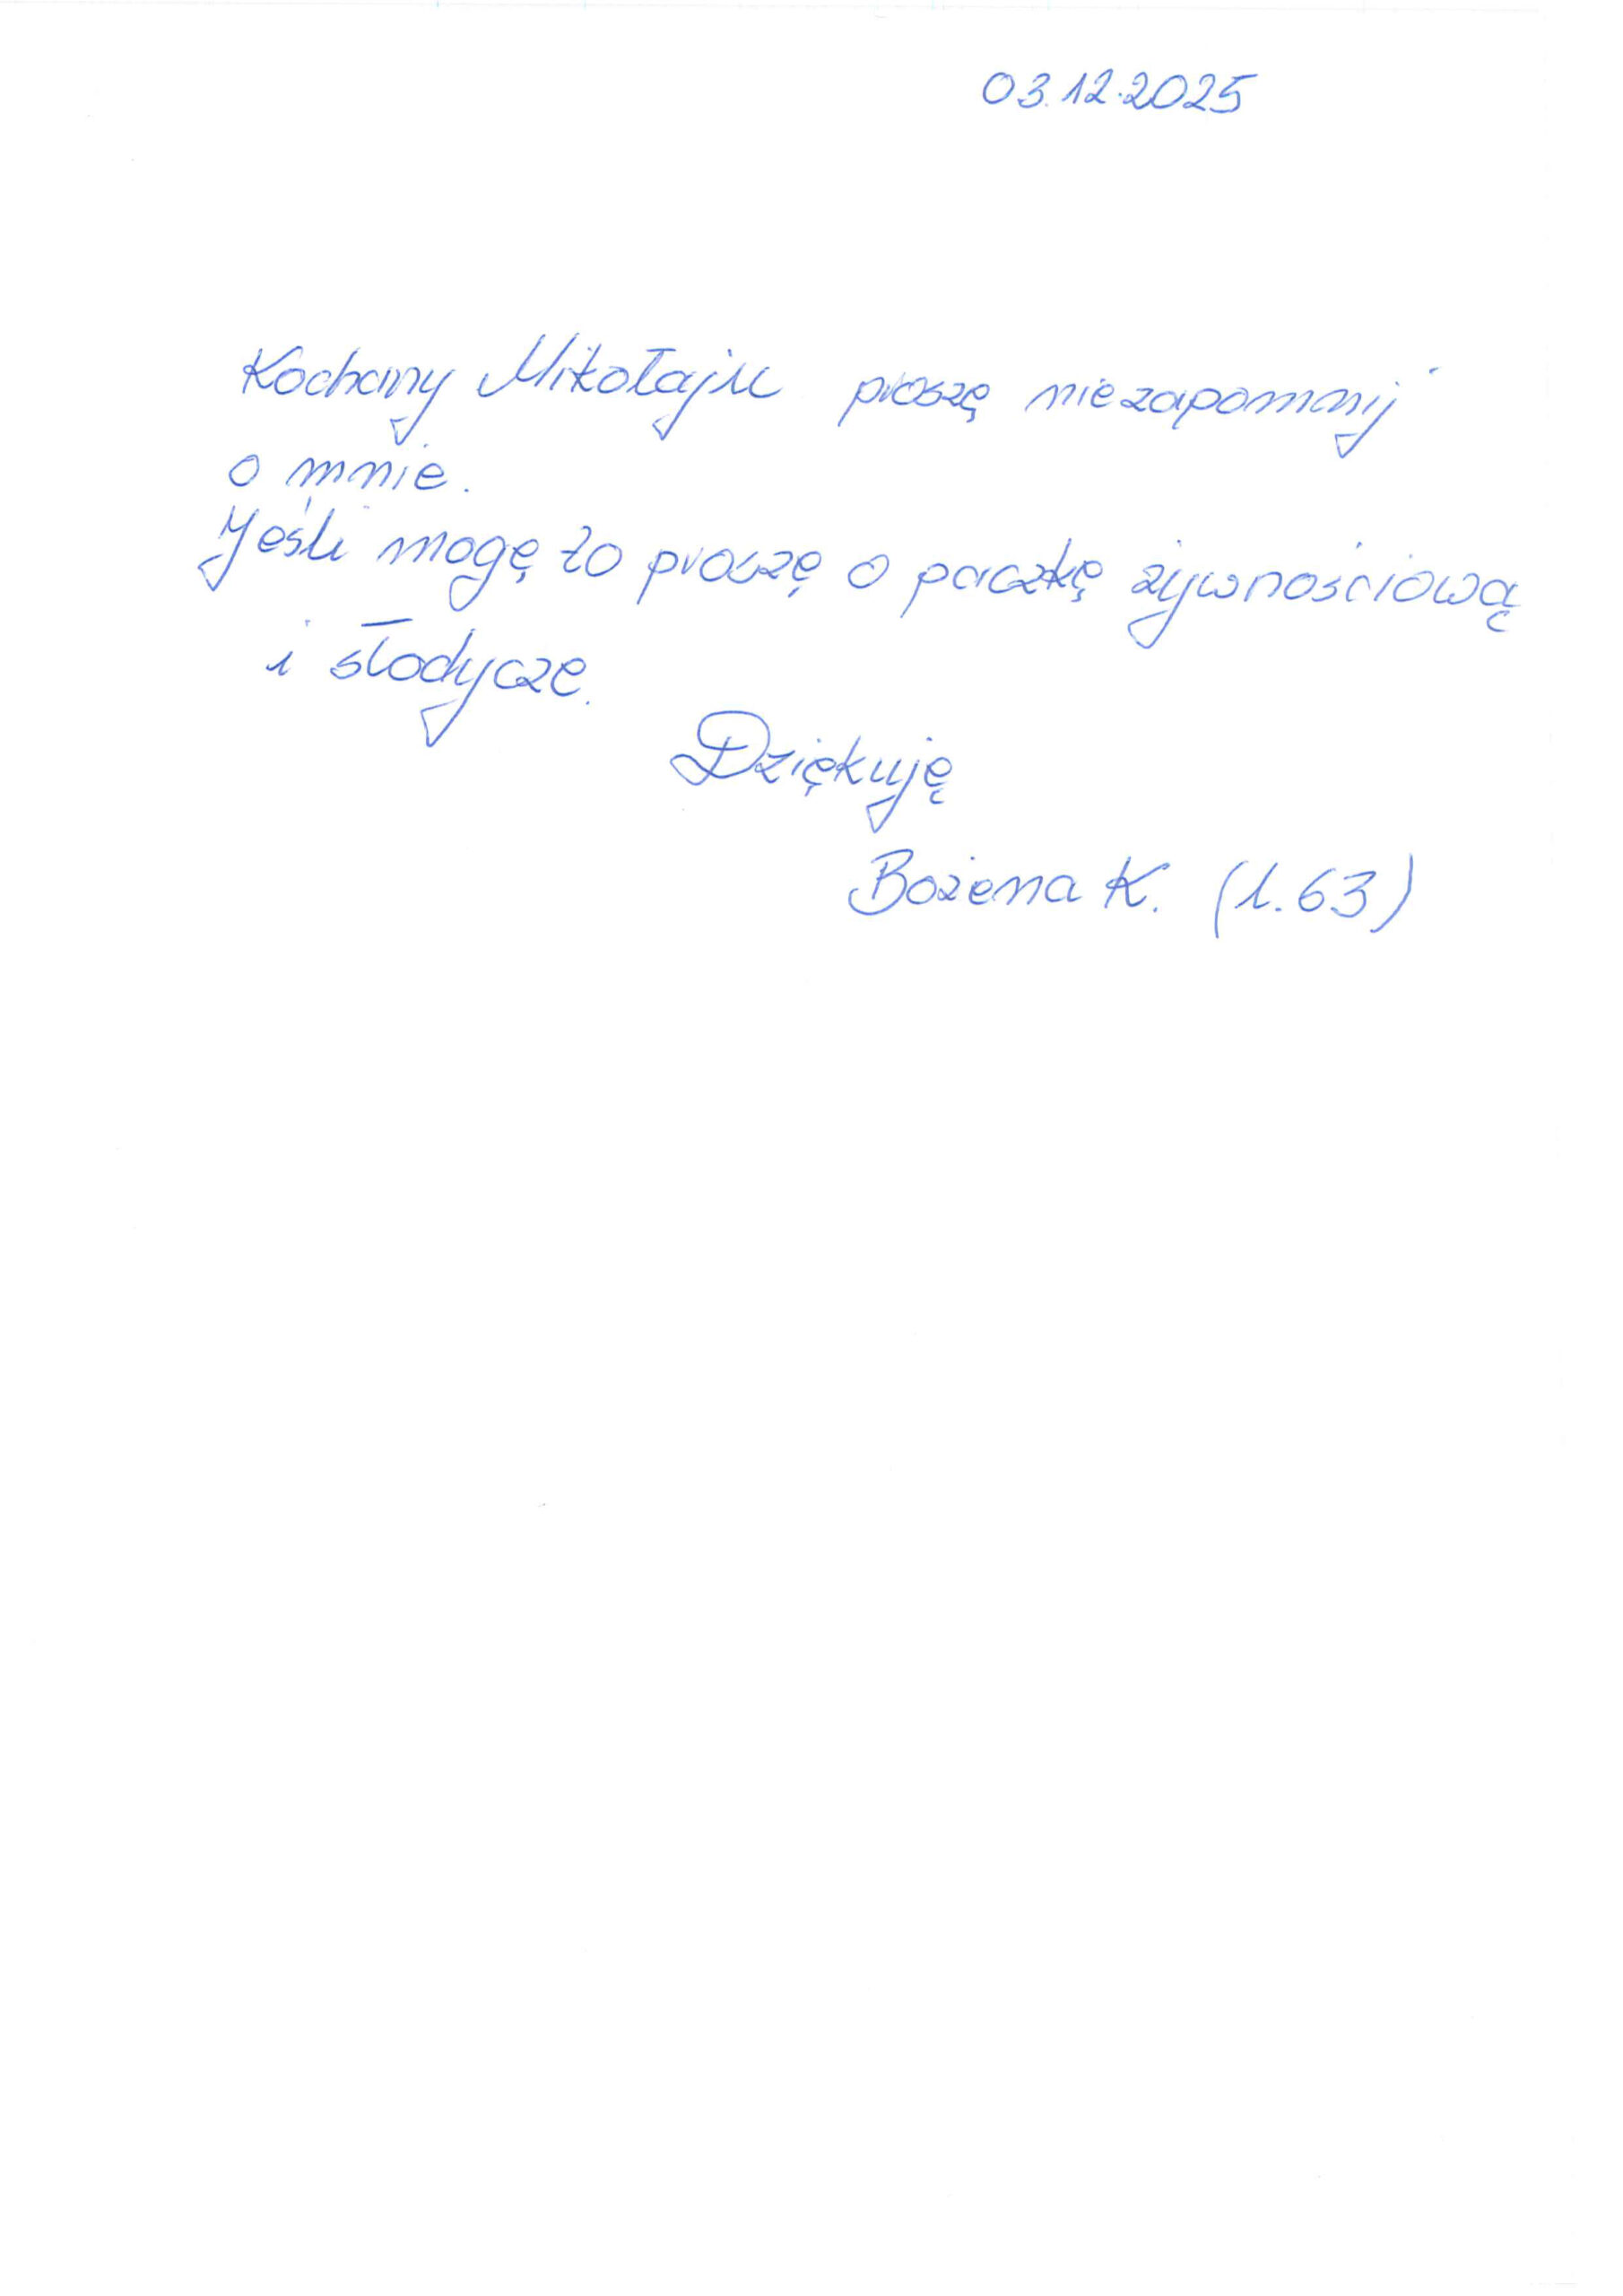 03.12.2025
Kochany Mikołaju proszę niezapomnij
o mnie.
Jeśli mogę to proszę o paczkę żywnościową
i słodycze.
Dziękuję
Bożena K. (l.63)